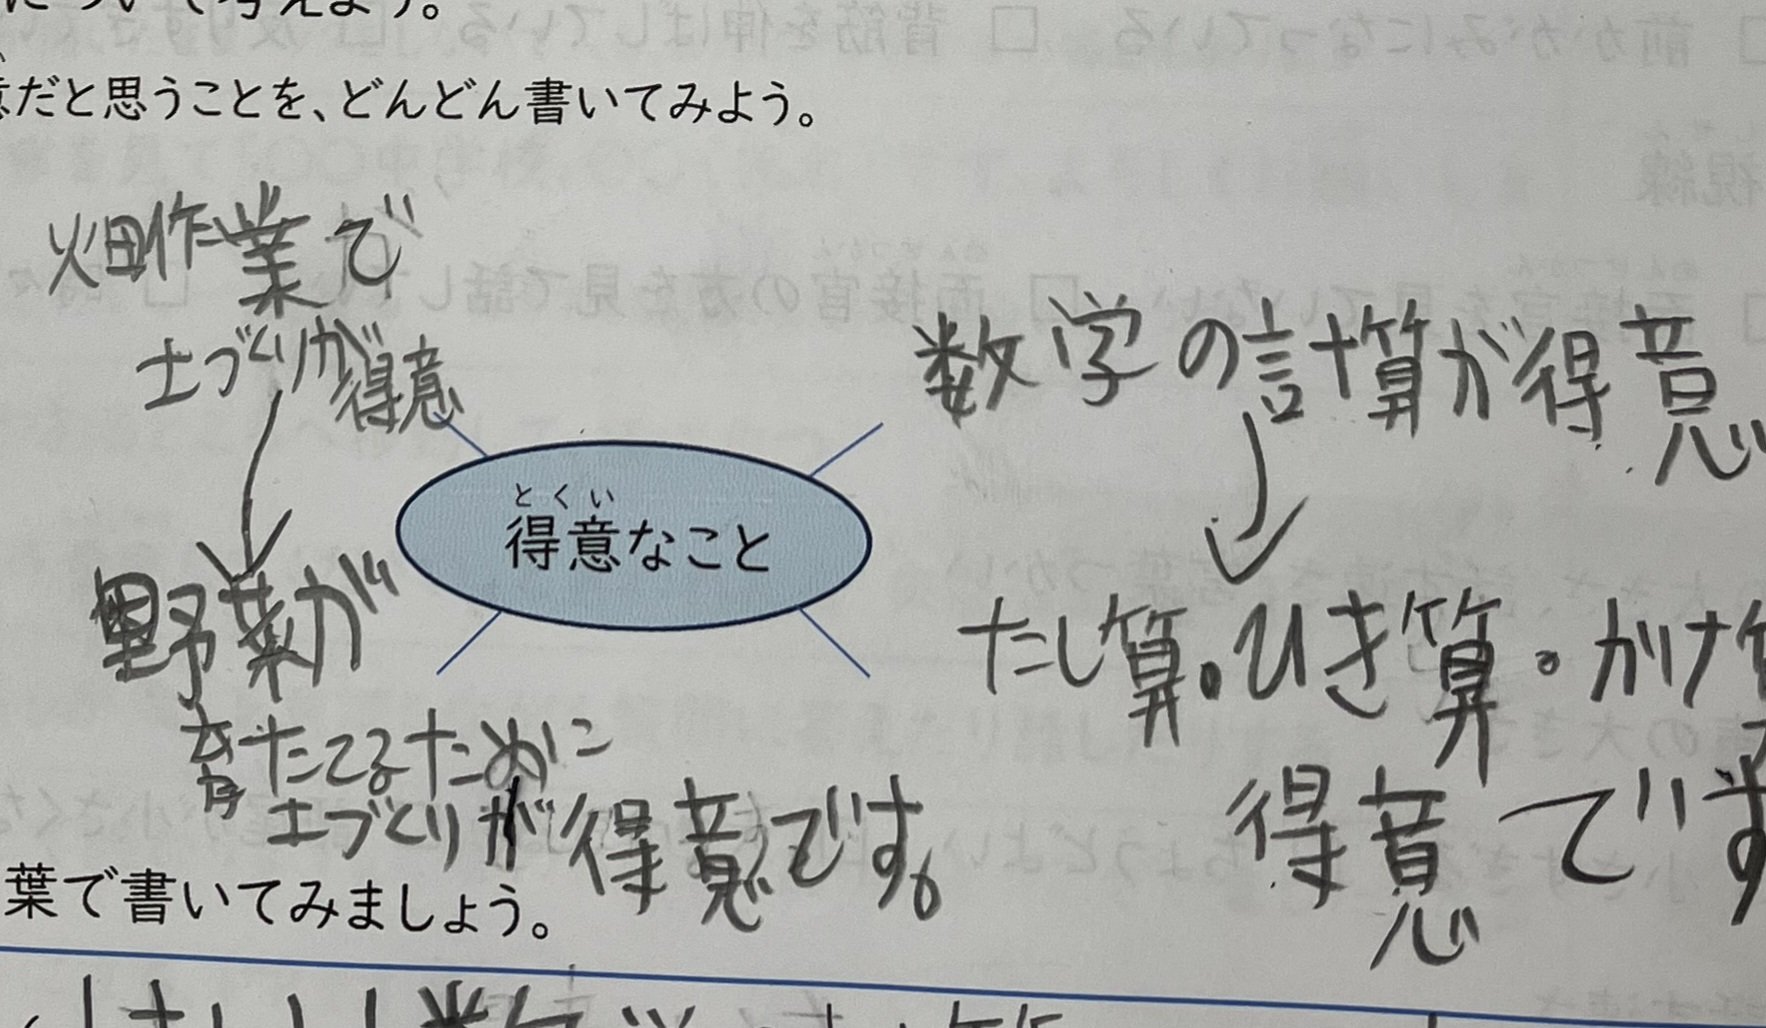 について考えよう。
意だと思うことを、どんどん書いてみよう。
畑作業で
土づくりが得意
野菜が
育たてるために
土づくりが得意です。
とくい
得意なこと
数学の計算が得意
たし算。ひき算。かけ算
得意です
葉で書いてみましょう。